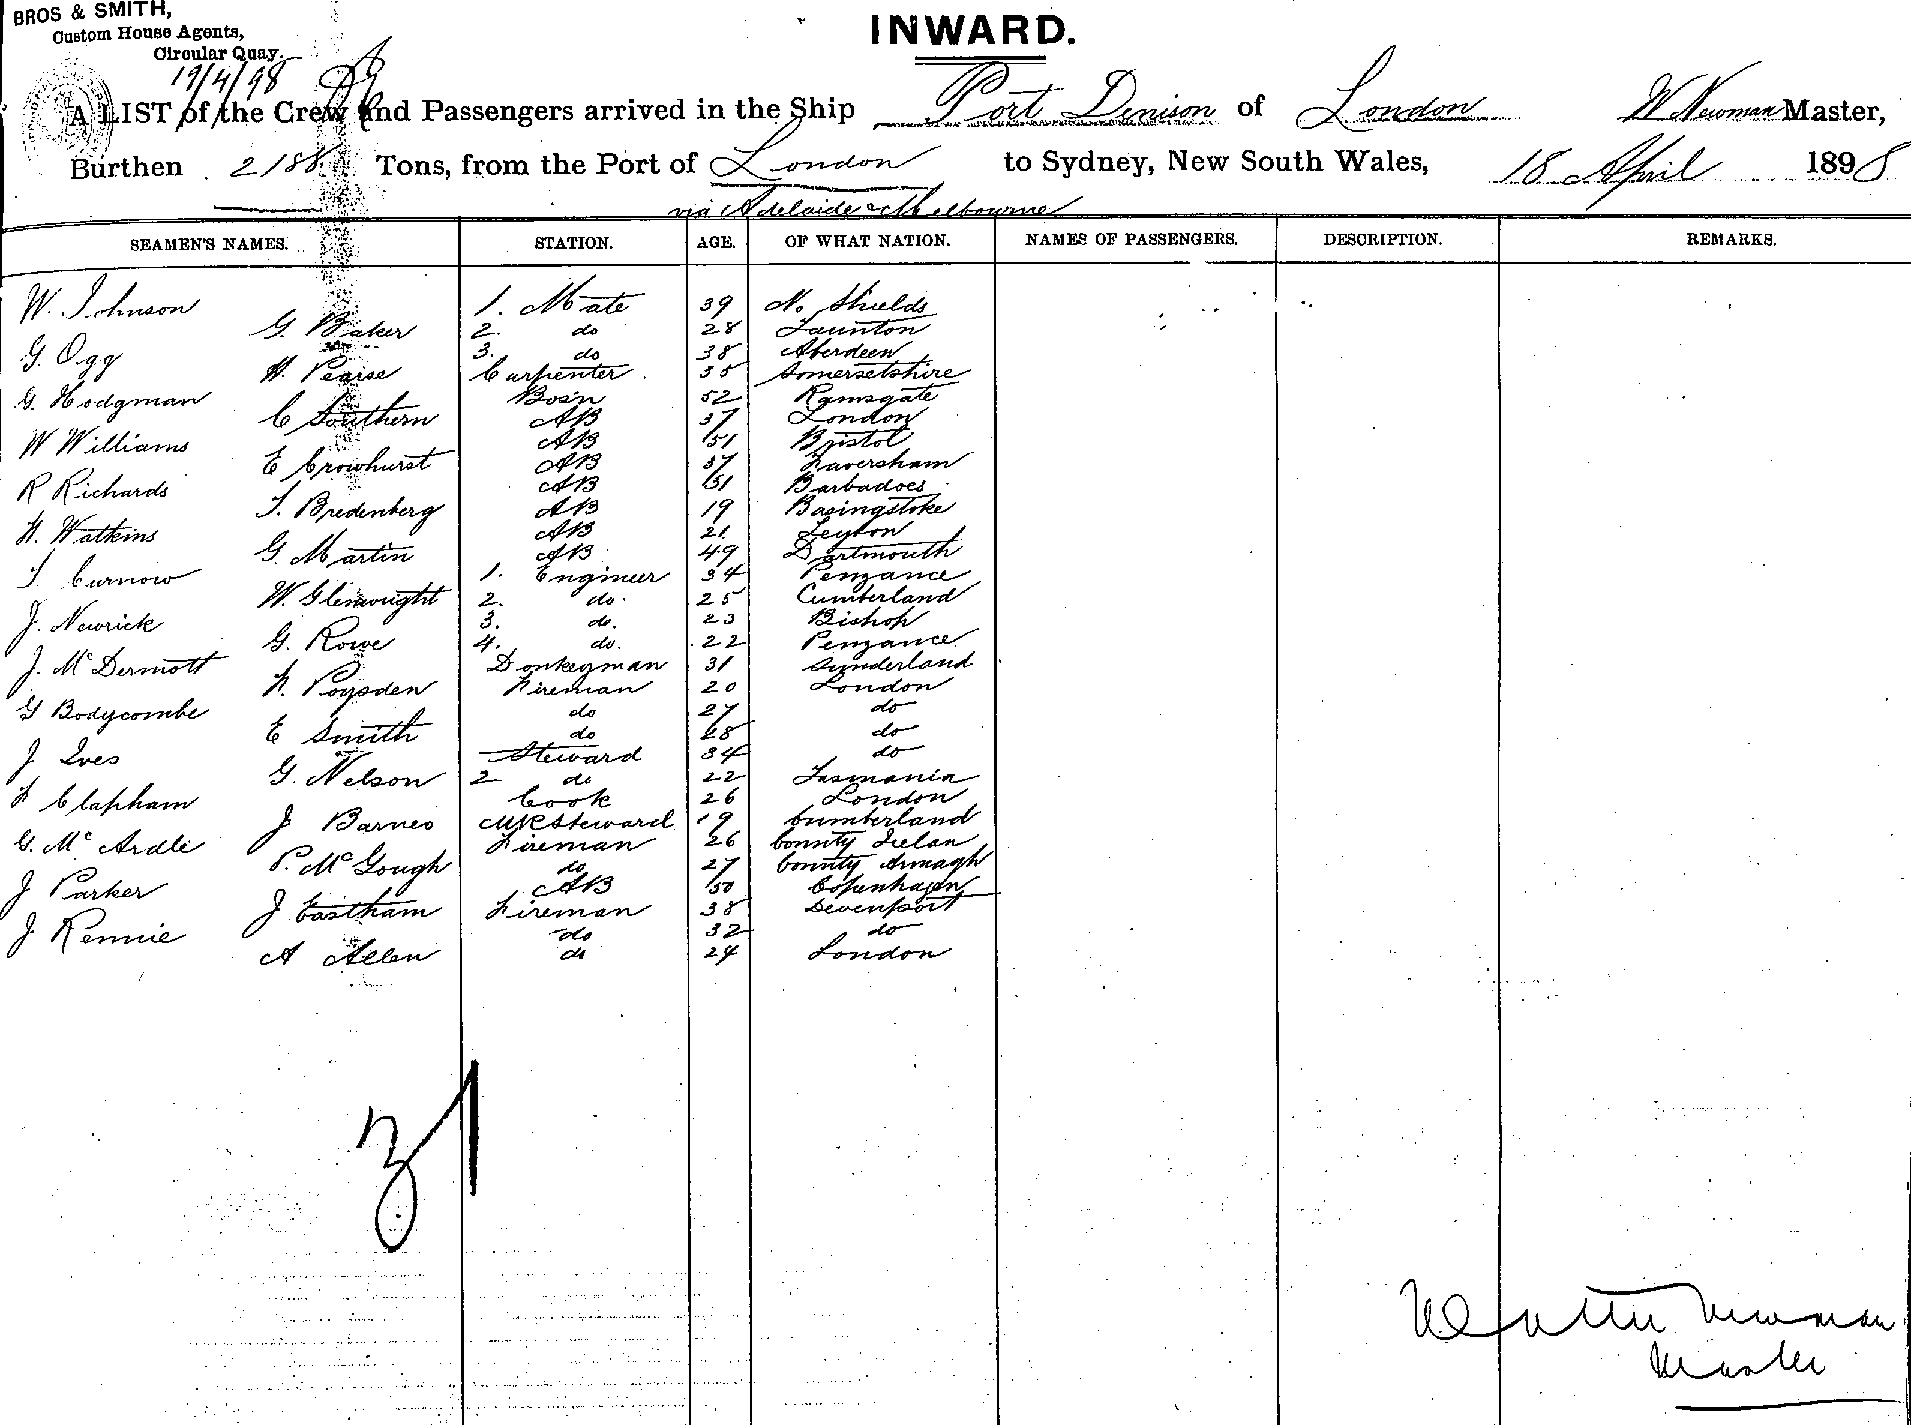 BROS & SMITH,
Custom House Agents,
Circular Quay.
19/4/98
INWARD.
A LIST of the Crew and Passengers arrived in the Ship Port Denison of London W Newman Master,
Burthen 2188 Tons, from the Port of London to Sydney, New South Wales, 18 April 1898
via Adelaide & Melbourne
SEAMEN'S NAMES. STATION. AGE. OF WHAT NATION. NAMES OF PASSENGERS. DESCRIPTION. REMARKS.
W. Johnson 1. Mate 39 No Shields
G. Baker 2. do 28 Taunton
G. Ogg 3. do 38 Aberdeen
H. Pearse Carpenter 35 Somersetshire
G. Hodgman Bosn 52 Ramsgate
C Southern AB 37 London
W Williams AB 51 Bristol
E Crowhurst AB 37 Faversham
R Richards AB 51 Barbadoes
T. Bredenberg AB 19 Basingstoke
H. Watkins AB 21 Leyton
G. Martin AB 49 Dartmouth
T Curnow 1. Engineer 34 Penzance
W. Glenwright 2. do. 25 Cumberland
J. Newrick 3. do. 23 Bishop
G. Rowe 4. do. 22 Penzance
J. McDermott Donkeyman 31 Sunderland
H. Poysden Fireman 20 London
G Bodycombe do 27 do
E Smith do 28 do
J Ives Steward 34 do
G. Nelson 2 do 22 Tasmania
F Clapham Cook 26 London
J Barnes MR Steward 19 Cumberland
G. Mc Ardle Fireman 26 County Irelan
P. McGough do 27 County Armagh
J Parker AB 50 Copenhagen
J Eastham Fireman 38 Devenport
J Rennie do 32 do
A Allen do 24 London
31
Walter Newman
Master